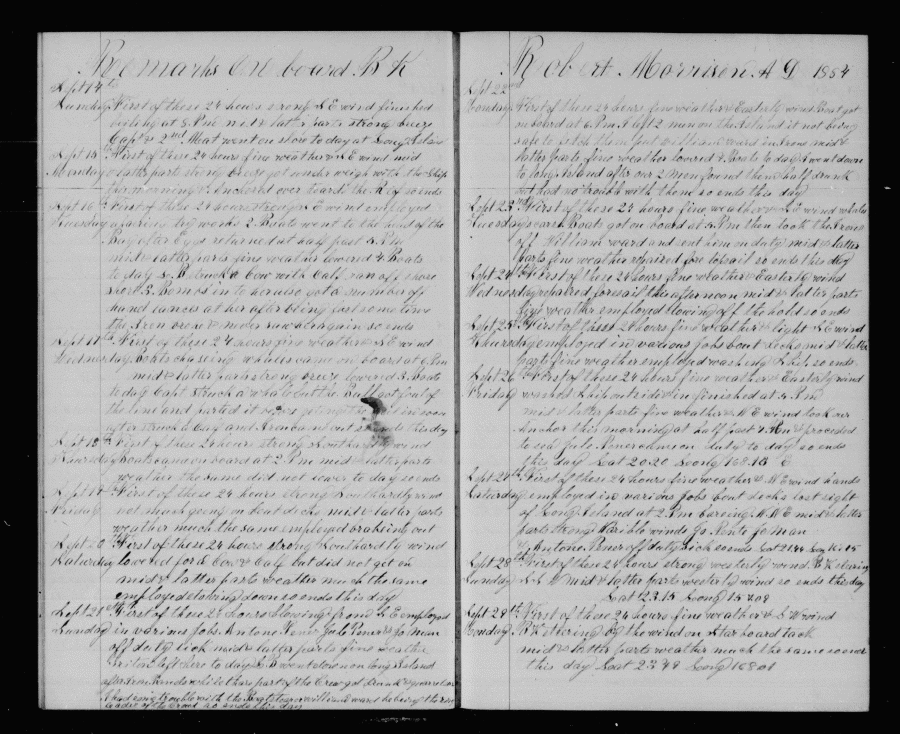 Remarks On board B K
Sept 14th
Sunday First of these 24 hours strong S E wind finished
at 8 Pm mid & latter parts strong breeze
Capt & 2nd Mate went on shore to day at Long Island
Sept 15th First of these 24 hours fine weather & S E wind mid
Monday & latter parts strong breeze got under weigh with the Ship
this morning & Anchored over the Reef so ends
Sept 16th First of these 24 hours strong S E wind employed
Tuesday try works 2 Boats went to the head of the
Bay after returned at half past 5 Pm
mid & latter parts fine weather lowered 4 Boats
to day L. B. struck a Cow with Calf ran off shore
shot 3 Bombs in to her also got a number off
hand lances at her after being fast some time
the Iron & never saw her again so ends
Sept 17th First of these 24 hours fine weather & S E wind
Wednesday boats chasing whales came on board at 6 Pm
mid & latter parts strong breeze lowered 3 Boats
to day Capt struck a whale but the Bull got foul of
the line and parted it in soon
after struck a Cow and Iron out so ends this day
Sept 18th First of these 24 hours strong Southardly wind
Thursday Boats came on board at 2 Pm mid & latter parts
weather the same did not lower to day so ends
Sept 19th First of these 24 hours strong Southardly wind
Friday not much going on about decks mid & latter parts
weather much the same employed out
Sept 20th First of these 24 hours strong Southardly wind
Saturday lowered for a Cow & Calf but did not get on
mid & latter parts weather much the same
employed down so ends this day
Sept 21st First of these 24 hours blowing from S E employed
Sunday in various jobs. Antone Pener Julo Pener & Jo Man
off duty sick mid & latter parts fine weather
left here to day L. B. went down on Long Island
after while there part of the Crew got drunk &
had some trouble with the Boatsteerer William Ward he being the
leader of the Crowd so ends this day
Robert Morrison A D 1884
Sept 22nd
Monday First of these 24 hours fine weather & Easterly wind Boat got
on board at 6 Pm I left 2 men on the Island it not being
safe to fetch them put William Ward in Irons mid &
latter parts fine weather lowered 4 Boats to day & went down
to Long Island after our 2 Men found them half drunk
but had no trouble with them so ends this day
Sept 23rd First of these 24 hours fine weather & S E wind
Tuesday Boats got on board at 5 Pm then took the Irons
off William Ward and sent him on duty mid & latter
parts fine weather repaired fore topsail so ends this day
Sept 24th First of these 24 hours fine weather & Easterly wind
Wednesday repaired foresail this afternoon mid & latter parts
fine weather employed stowing off the hold so ends
Sept 25th First of these 24 hours fine weather & light S E wind
Thursday employed in various jobs bout decks mid & latter
parts fine weather employed washing Ship so ends
Sept 26th First of these 24 hours fine weather & Easterly wind
Friday washed Ship outside & in finished at 5 Pm
mid & latter parts fine weather & S E wind took our
Anchor this morning at half past 4 Am & proceeded
to sea Julo Pener came on duty to day so ends
this day Lat 20.20 Long 168.15 E
Sept 27th First of these 24 hours fine weather & N E wind hands
Saturday employed in various jobs bout decks lost sight
of Long Island at 2 Pm bearing N N E mid & latter
parts strong Varible winds Jo Man
& Antone Pener off duty sick so ends Lat 21.44
Sept 28th First of these 24 hours strong westerly wind B K steering
Sunday S S W mid & latter parts westerly wind so ends this day
Lat 23.15 Long
Sept 29th First of these 24 hours fine weather & S W wind
Monday B K steering By the wind on Starboard tack
mid & latter parts weather much the same so ends
this day Lat 23.48 Long 168.01